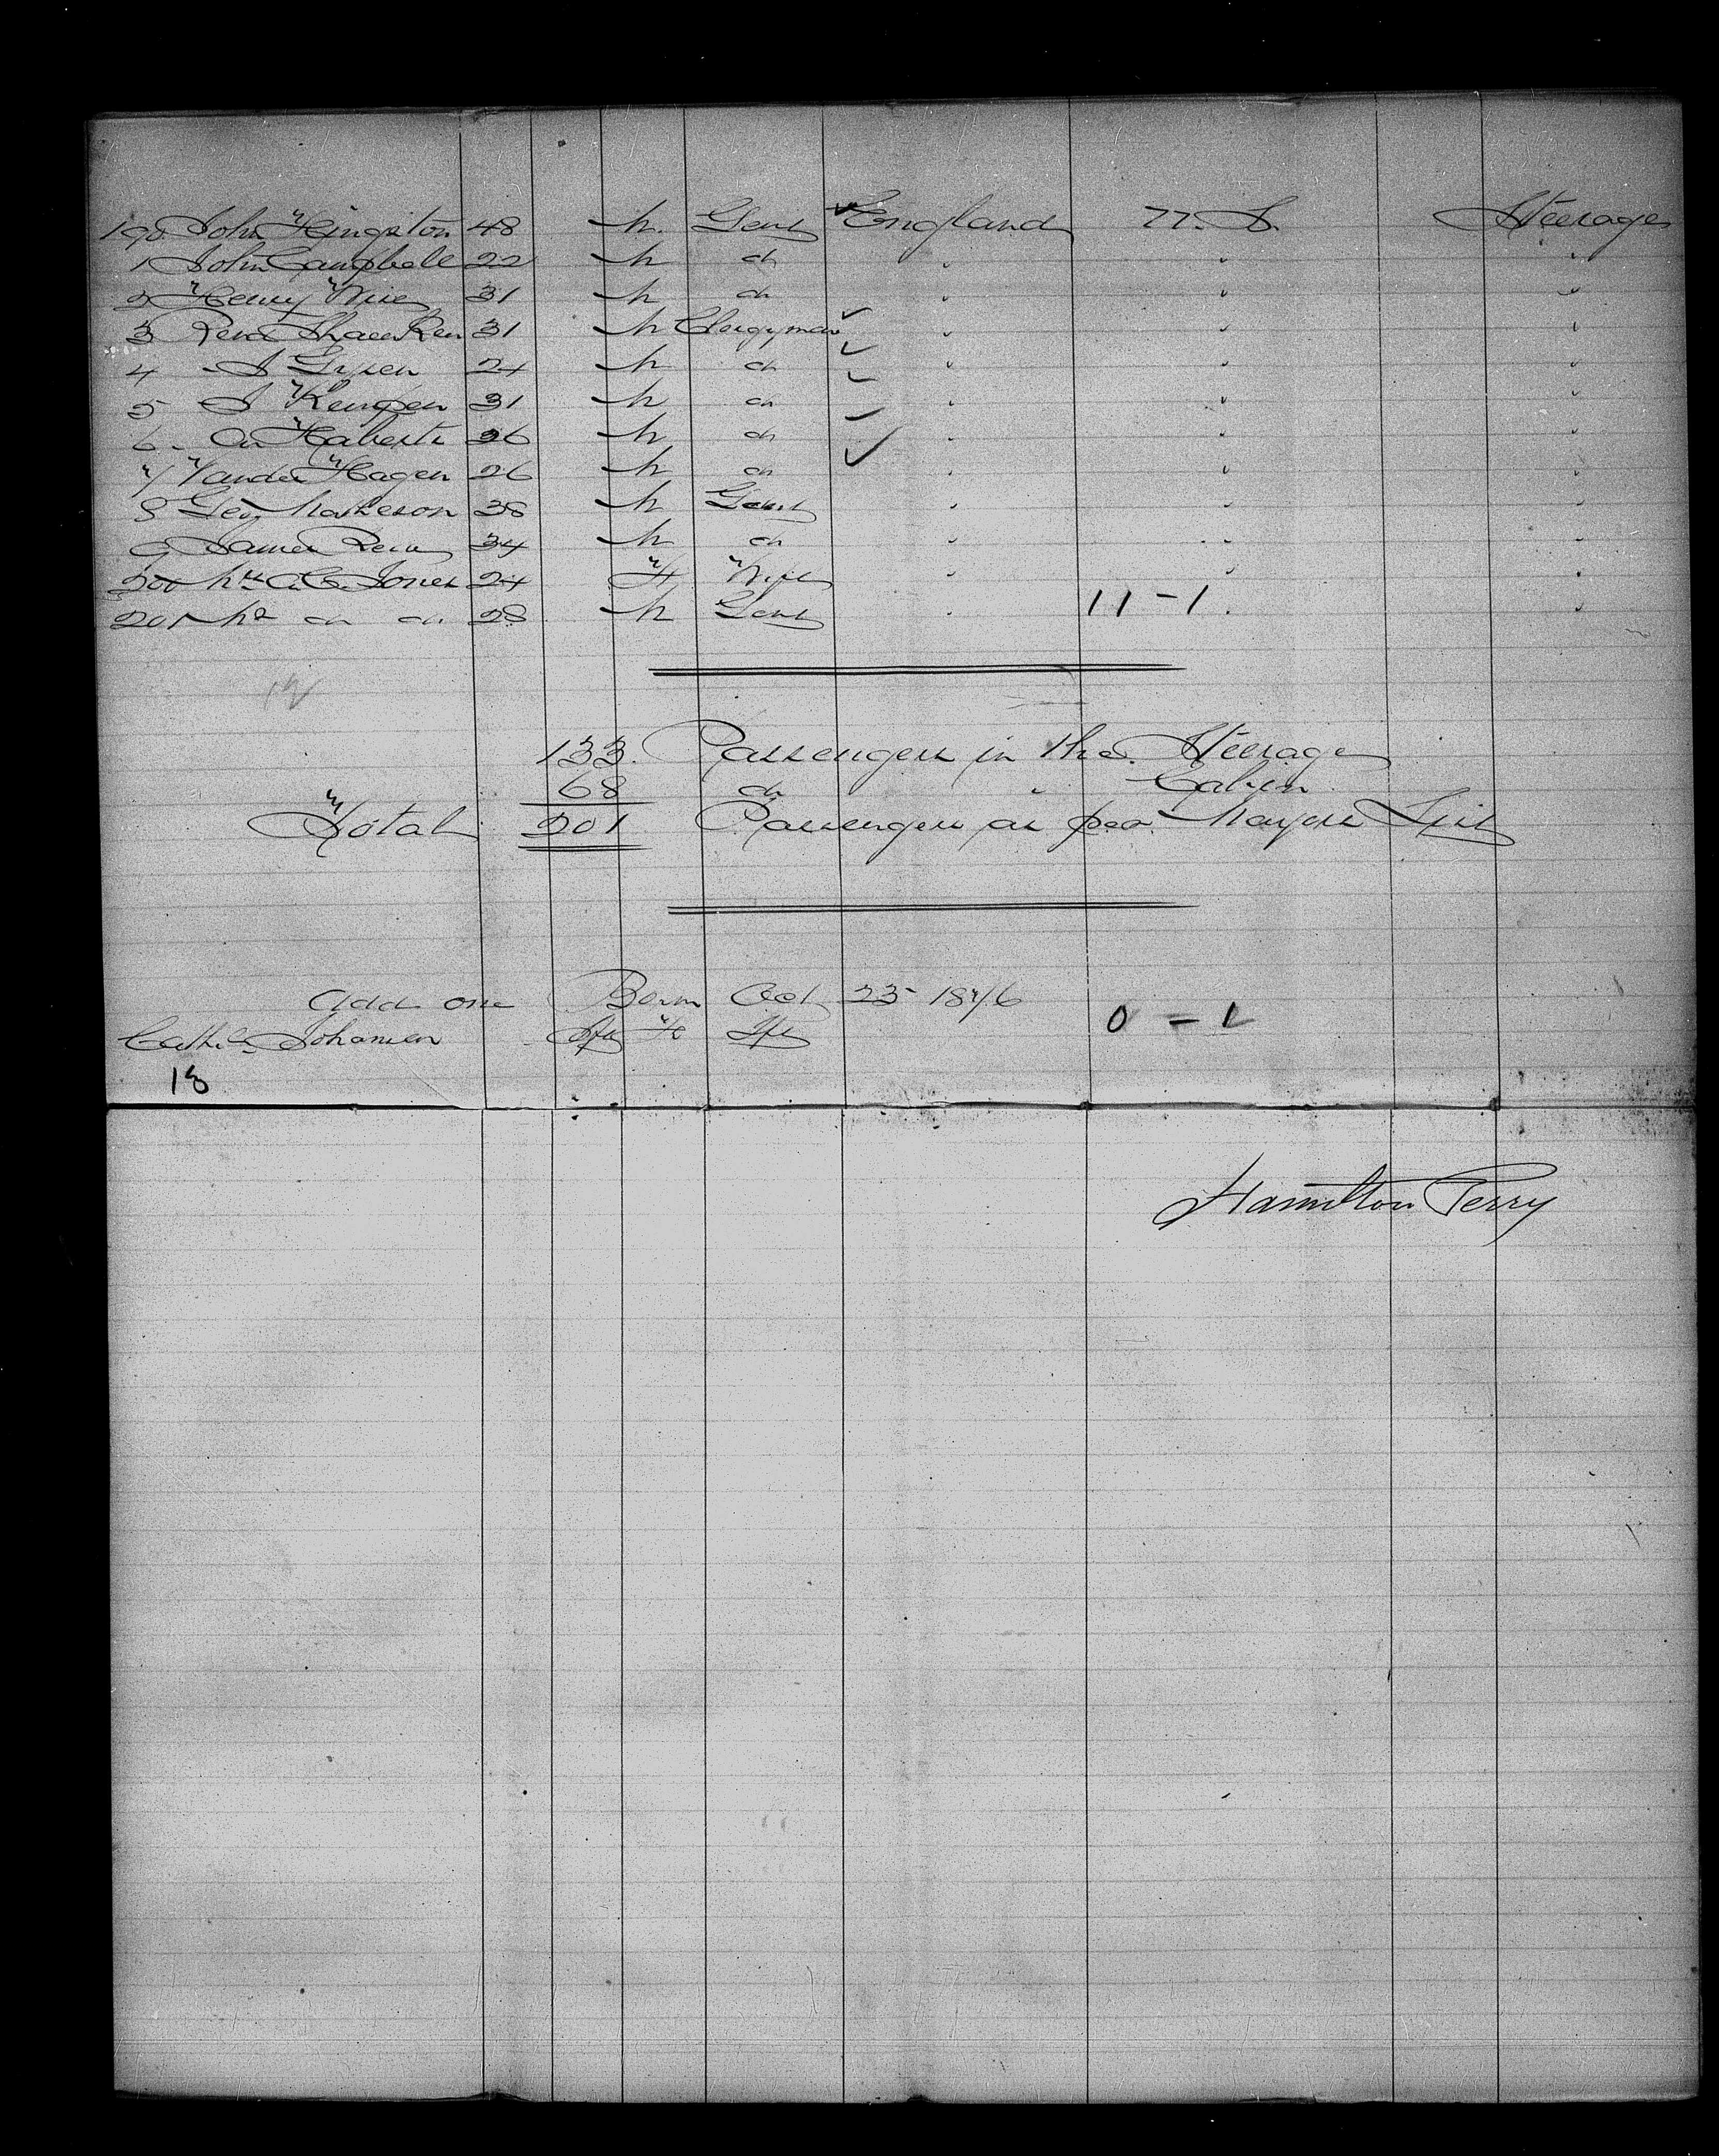 190 John Kingston 48 M. Gent England U.S. Steerage
1 John Campbell 22 M do " " "
2 Henry 31 M do " " "
3 31 M Clergyman " " "
4 J 24 M do " " "
5 J Kempen 31 M do " " "
6 26 M do " " "
7 Vander Hagen 26 M do " " "
8 Geo Matheson 38 M Gent " " "
9 James 34 M do " " "
200 Mrs Jones 24 F Wife " " "
201 Mr do do 28 M Gent " 11-1 "
12
133. Passengers in the Steerage
68 do " Cabin
Total 201 Passengers as per Mayors List
Add one Born Oct 25 1876
Johansen F 0 - 1
13
Hamilton Perry